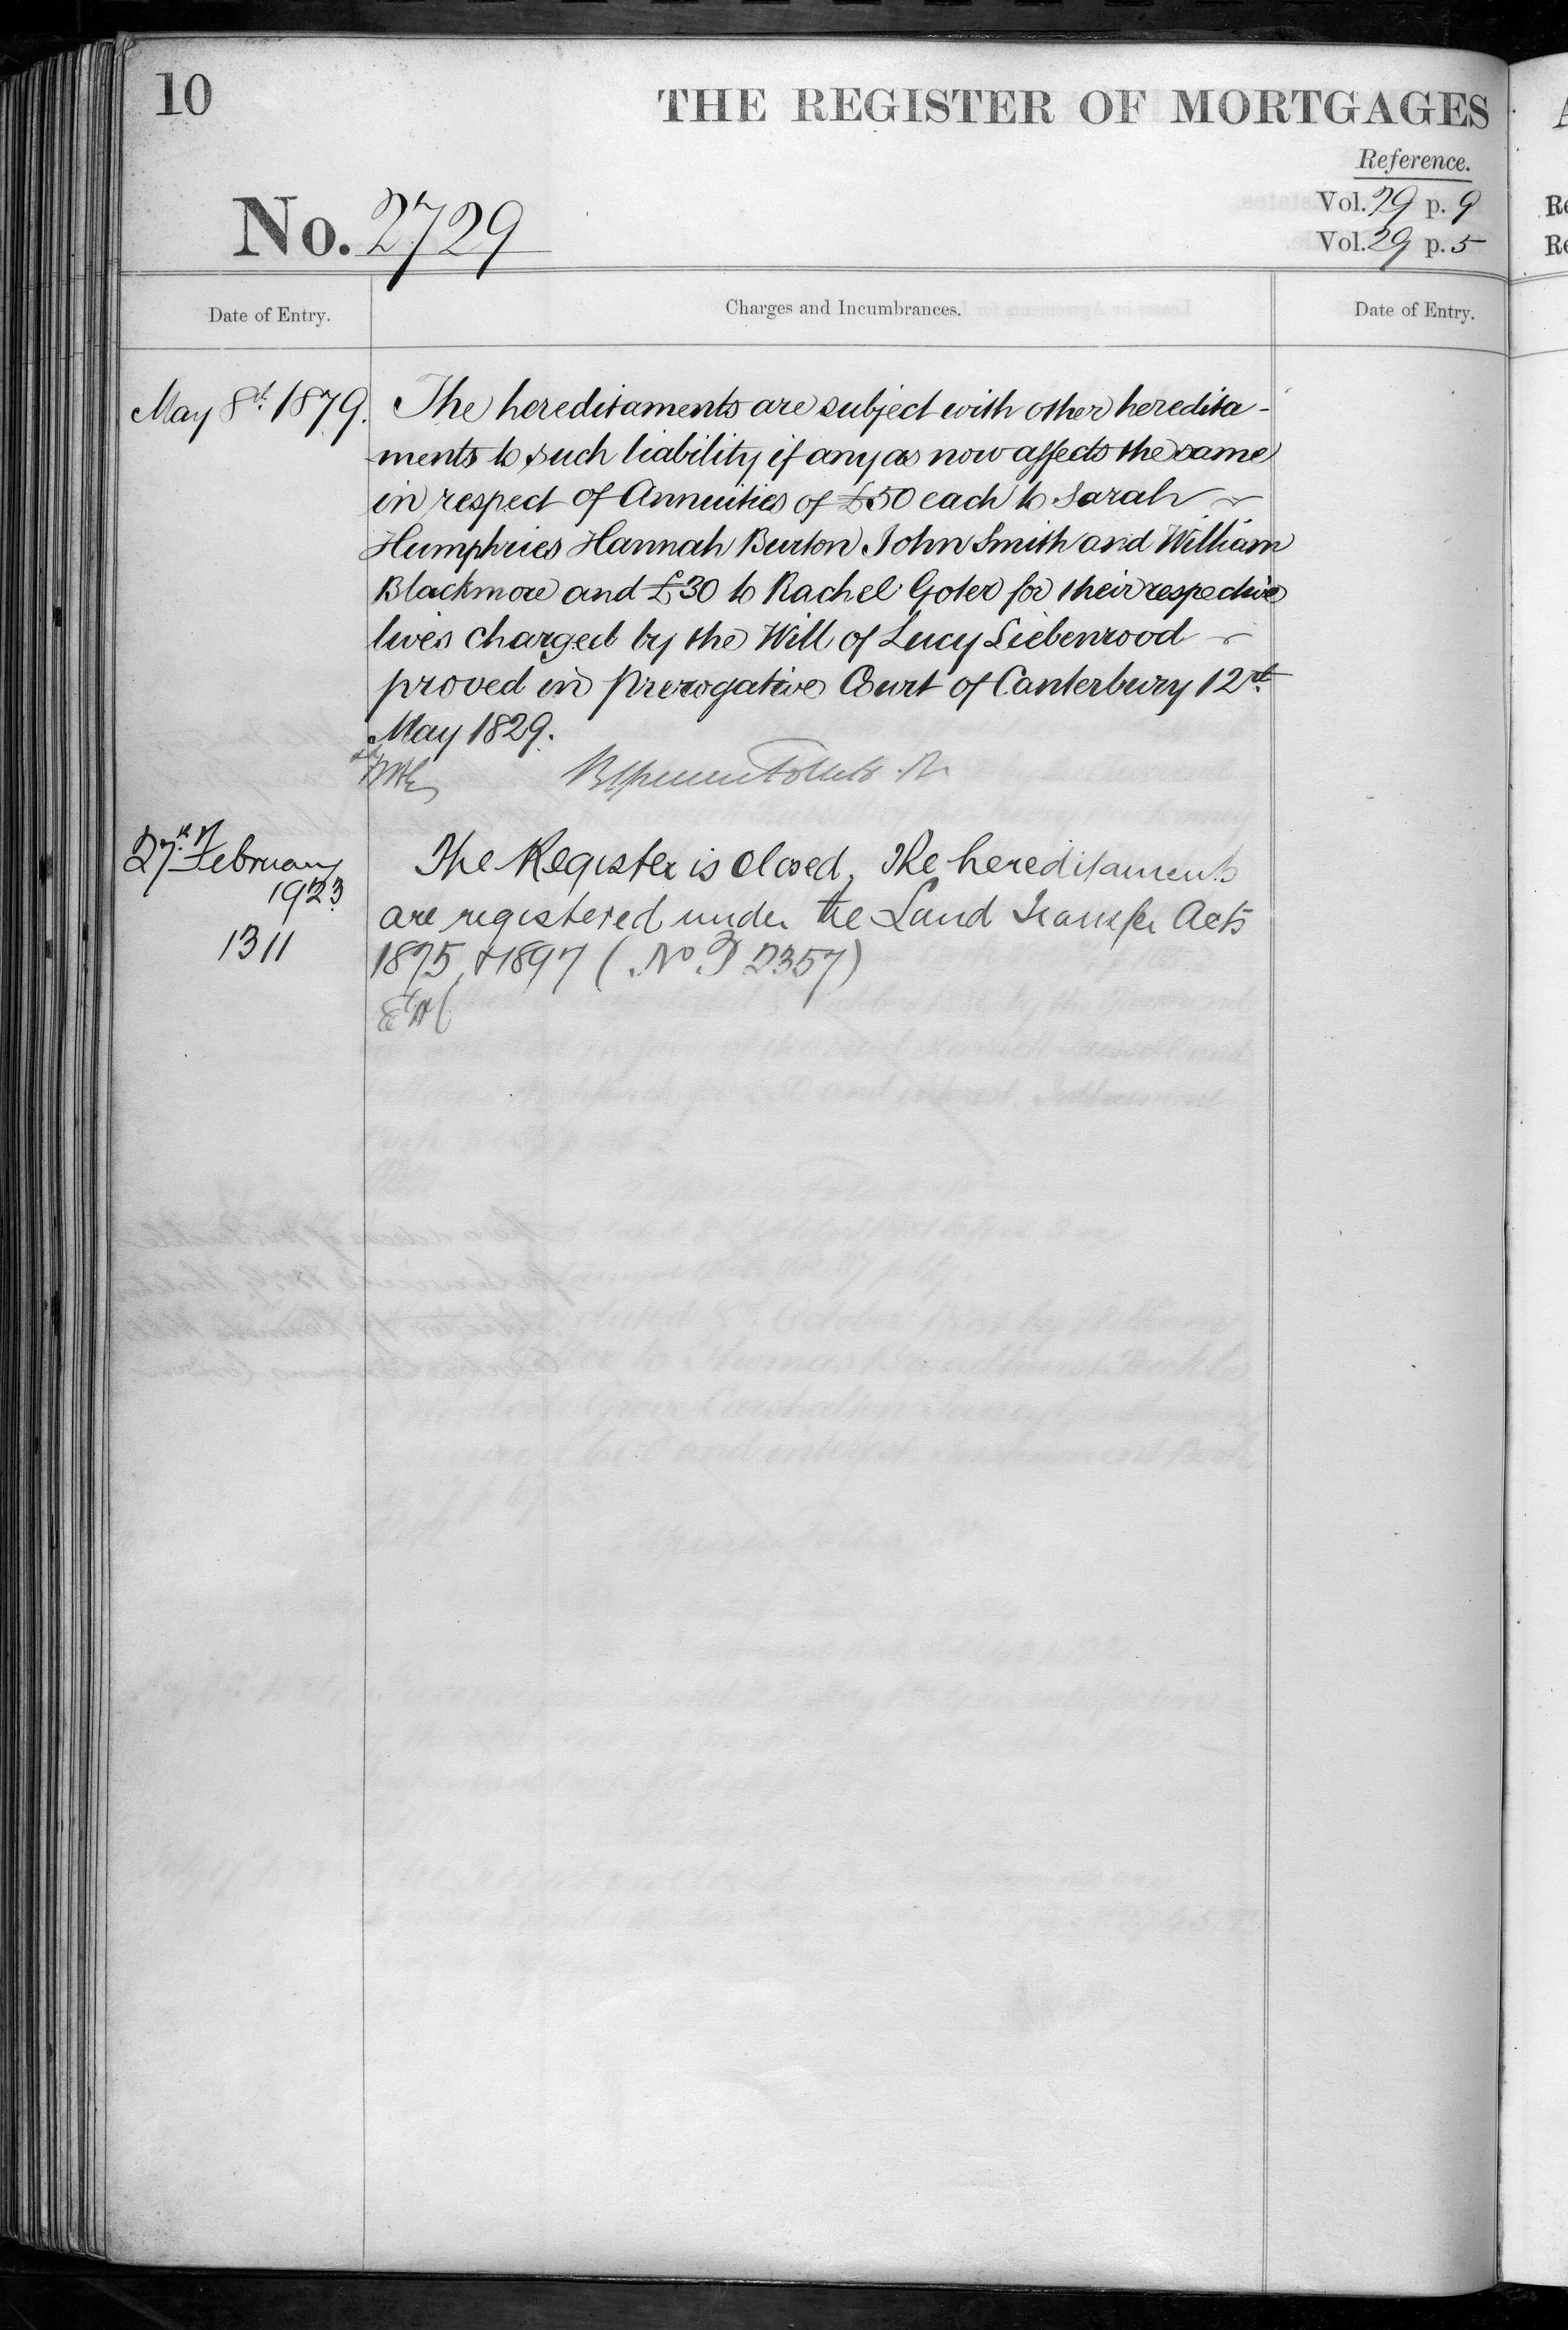 10
THE REGISTER OF MORTGAGES
Reference.
No. 2729
Vol. 29 p. 9
Vol. 29 p. 5
Date of Entry.
Charges and Incumbrances.
Date of Entry.
May 8th 1879.
The hereditaments are subject with other heredita-
ments to such liability if any as now affects the same
in respect of Annuities of £50 each to Sarah
Humphries Hannah Burton John Smith and William
Blackmore and £30 to Rachel Goter for their respective
lives charged by the Will of Lucy Liebenrood
proved in Prerogative Court of Canterbury 12th
May 1829.
27th February
1923
1311
The Register is closed, The hereditaments
are registered under the Land Transfer Acts
1875 & 1897 (No P 2357)